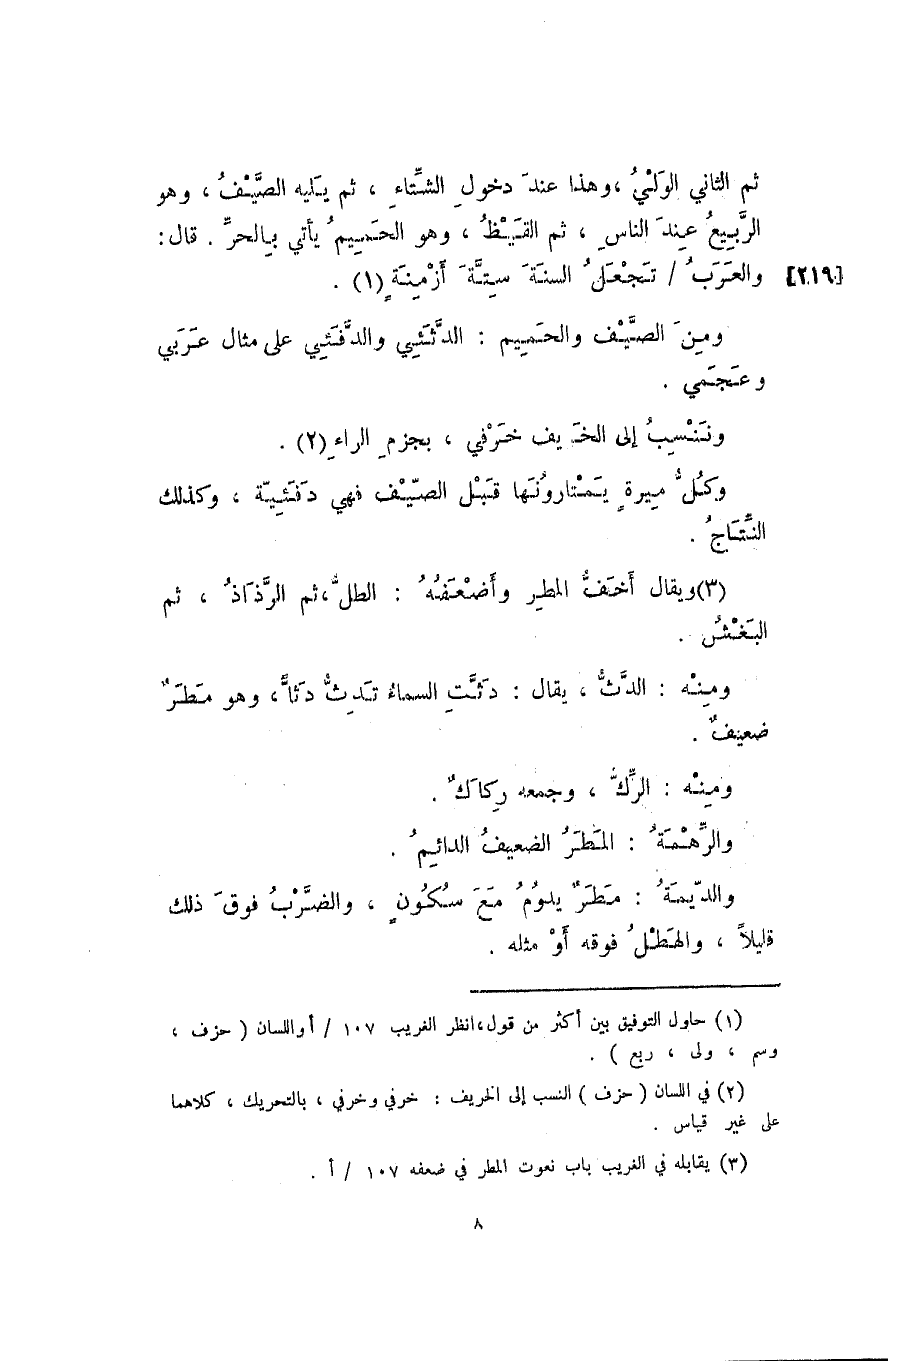 ثم الثاني الوَلْيُ ،وهذا عندَ دخولِ الشتّاءِ ، ثم يَليه الصَّيْفُ ، وهو
الرَّبيعُ عِندَ الناسِ ، ثم القَيْظُ ، وهو الحَميمُ يأتي بِالحرِّ . قال:
[٢١٩] والعَرَبُ / تَجْعَلُ السنةَ سِتَّةَ أَزْمِنَةٍ (١) .
ومِنَ الصَّيْف والحَميم : الدَّثَئِي والدَّفَئِي على مثال عَرَبي
وعَجَمي .
ونَنْسِبُ إلى الخَريف خَرْفي ، بجزمِ الراءِ (٢) .
وكُلُّ مِيرةٍ يَمْتارونَها قَبْل الصّيْف فهي دَفَئِيّة ، وكذلك
النِّتاجُ .
(٣)ويقال أَخَفُّ المطرِ وأَضْعَفُهُ : الطلُّ،ثم الرَّذاذُ ، ثم
البَغْشُ .
ومِنْه : الدَّثُّ ، يقال : دَثَّتِ السماءُ تَدِثُّ دَثاًّ، وهو مَطَرٌ
ضعيفٌ .
ومِنْه : الرِّكُّ ، وجمعه رِكاكٌ .
والرِّهْمَةُ : المَطَرُ الضعيفُ الدائِمُ .
والدِّيمَةُ : مَطَرٌ يدوُمُ مَعَ سُكُونٍ ، والضَّرْبُ فوقَ ذلك
قليلاً ، والهَطْلُ فوقه أَوْ مثله .
(١) حاول التوفيق بين أكثر من قول،انظر الغريب ١٠٧ / أواللسان ( حزف ،
وسم ، ولى ، ربع ) .
(٢) في اللسان ( حزف ) النسب إلى الخريف : خرفي وخرفي ، بالتحريك ، كلاهما
على غير قياس .
(٣) يقابله في الغريب باب نعوت المطر في ضعفه ١٠٧ / أ .
٨